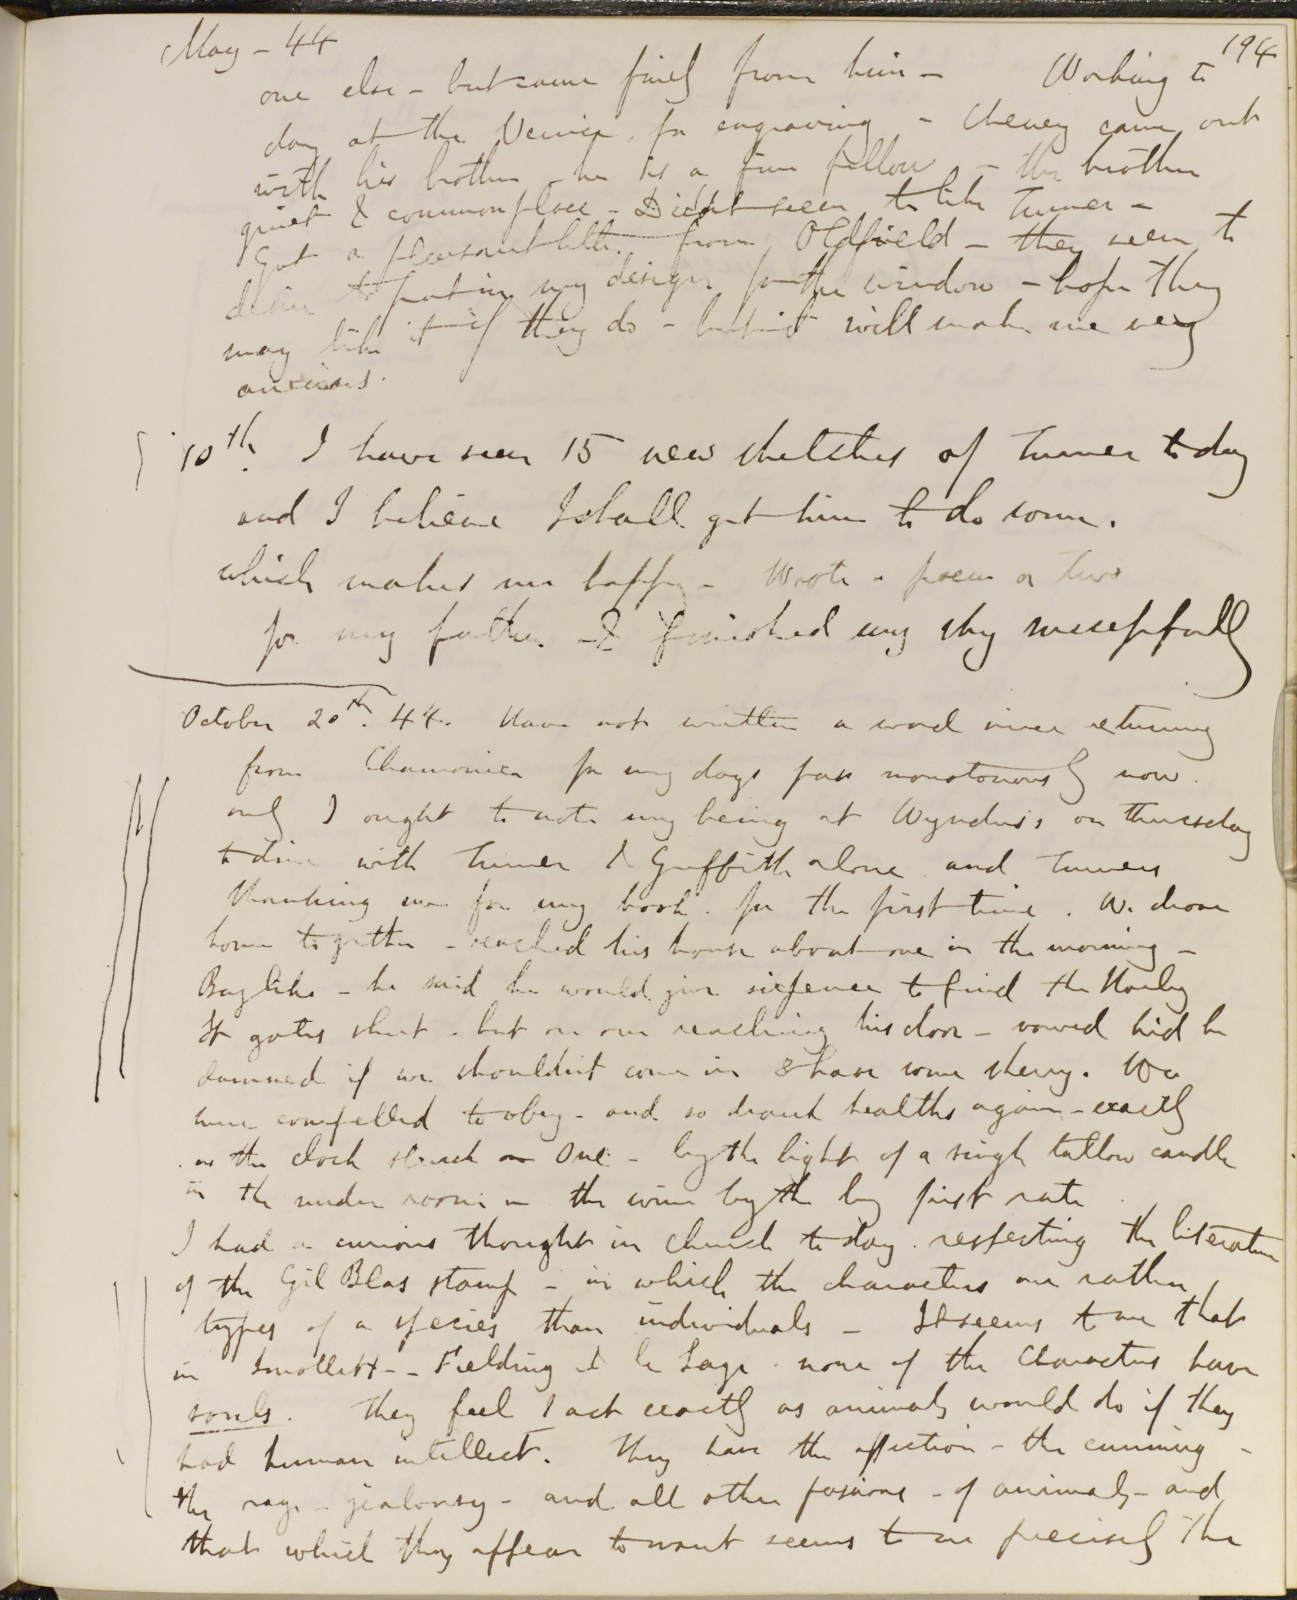 May - 44
194
one else - but came finely from him - Working to
day at the Venice, for engraving - Cheney came out
with his brother - he is a fine fellow - the brother
quiet & commonplace - Didnt seem to like Turner -
Got a pleasant letter from Oldfield - they seem to
desire to put in my design for the window - hope they
may like it if they do - but it will make me very
anxious.
10th. I have seen 15 new sketches of Turner today
and I believe I shall get him to do some.
which makes me happy - Wrote a poem or two
for my father - & finished my sky successfully
October 20th. 44. Have not written a word since returning
from Chamonix for my days pass monotonously now.
only I ought to note my being at Wyndus's on thursday
to dine with Turner & Griffith alone and Turners
thanking me for my book. for the first time. We drove
home together - reached his house about one in the morning -
Boylike - he said he would give sixpence to find the Harley
St gates shut. but on our reaching his door - vowed hed be
damned if we shouldnt come in & have some sherry. We
were compelled to obey - and so drank healths again - exactly
as the clock struck One - by the light of a single tallow candle
in the under room - the wine by the by first rate.
I had a curious thought in church today. respecting the literature
of the Gil Blas stamp - in which the characters are rather
types of a species than individuals - It seems to me that
in Smollett - Fielding & le Sage. none of the Characters have
souls. They feel & act exactly as animals would do if they
had human intellect. They have the affection - the cunning -
the rage - jealousy - and all other passions - of animals - and
that which they appear to want seems to me precisely the